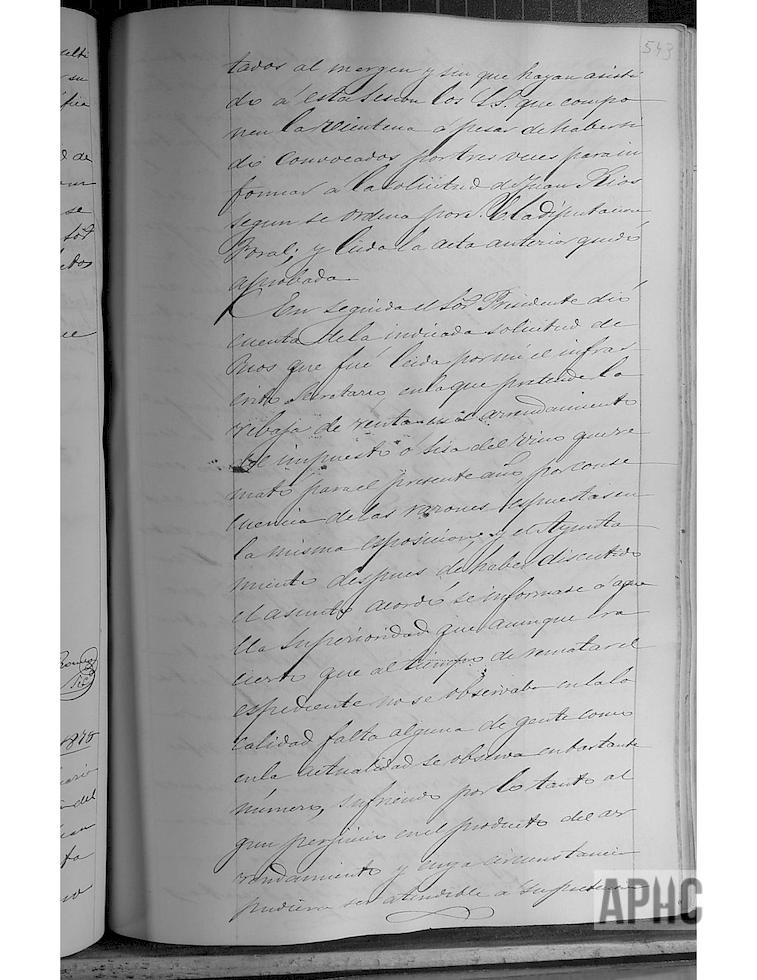 543
tados al margen y sin que hayan asisti
do á esta sesion los SS. que compo
nen la veintena á pesar de haber si
do convocados por tres veces para in
formar á la solicitud de Juan Rios
segun se ordena por la Diputacion
Foral; y leida la acta anterior quedó
aprobada.
En seguida el Sor Presidente dió
cuenta de la indicada solicitud de
Rios que fué leida por mi el infras
crito Secretario en la que pretende la
rebaja de renta en el arrendamiento
del impuesto ó sisa del vino que re
mató para el presente año por conse
cuencia de las razones espuestas en
la misma esposicion, y el Ayunta
miento despues de haber discutido
el asunto acordó se informase á aque
lla Superioridad que aunque era
cierto que al tiempo de rematar el
espediente no se observaba en la lo
calidad falta alguna de gente como
en la actualidad se observa en bastante
número, sufriendo por lo tanto al
gun perjuicio en el producto del ar
rendamiento y cuya circunstancia
pudiera ser atendible á
APHC